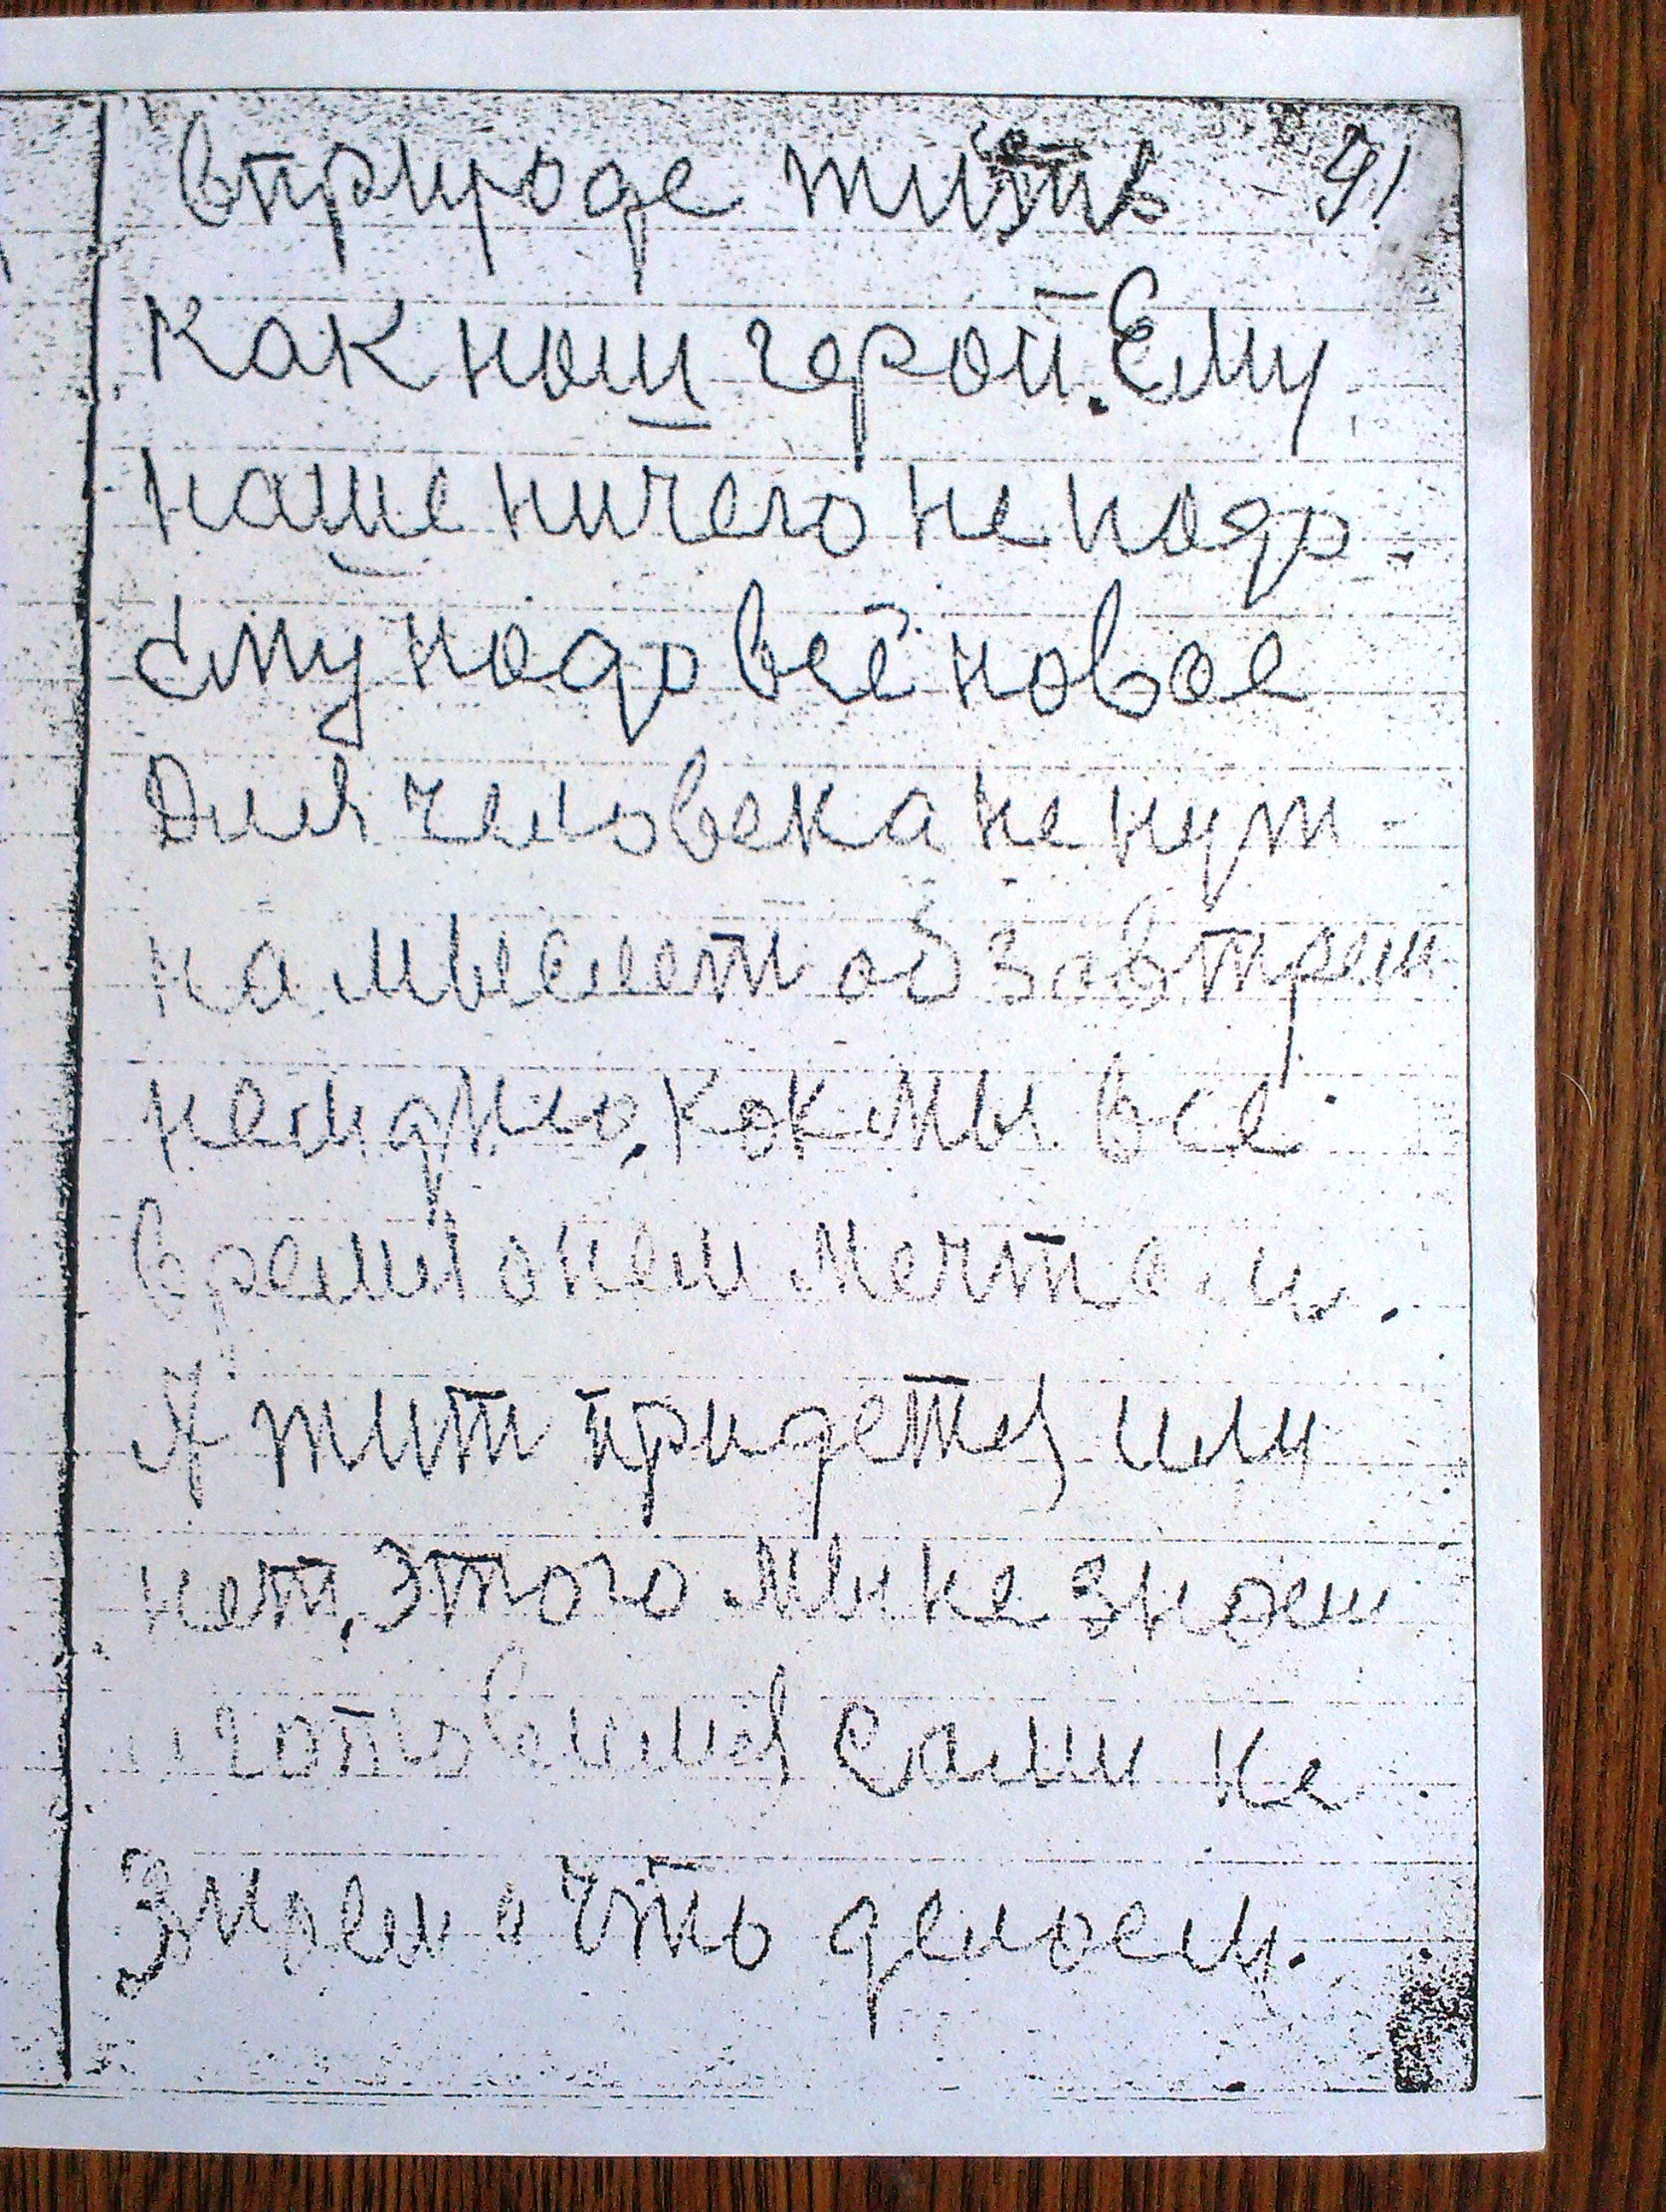 в природе жить 91
как наш герой. Ему
наше ничего не надо.
Ему надо всё новое
Для человека не нуж-
на мыслет об завтрем
не идно, как мы все
время о нем мечтаем.
А жит придется или
нет, этого мы не знаем
и готовимся сами не
Знаем что делаем.